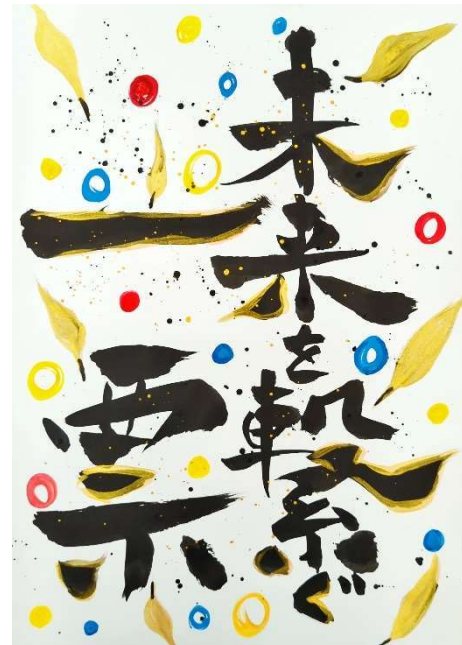 未来を繋ぐ
一票